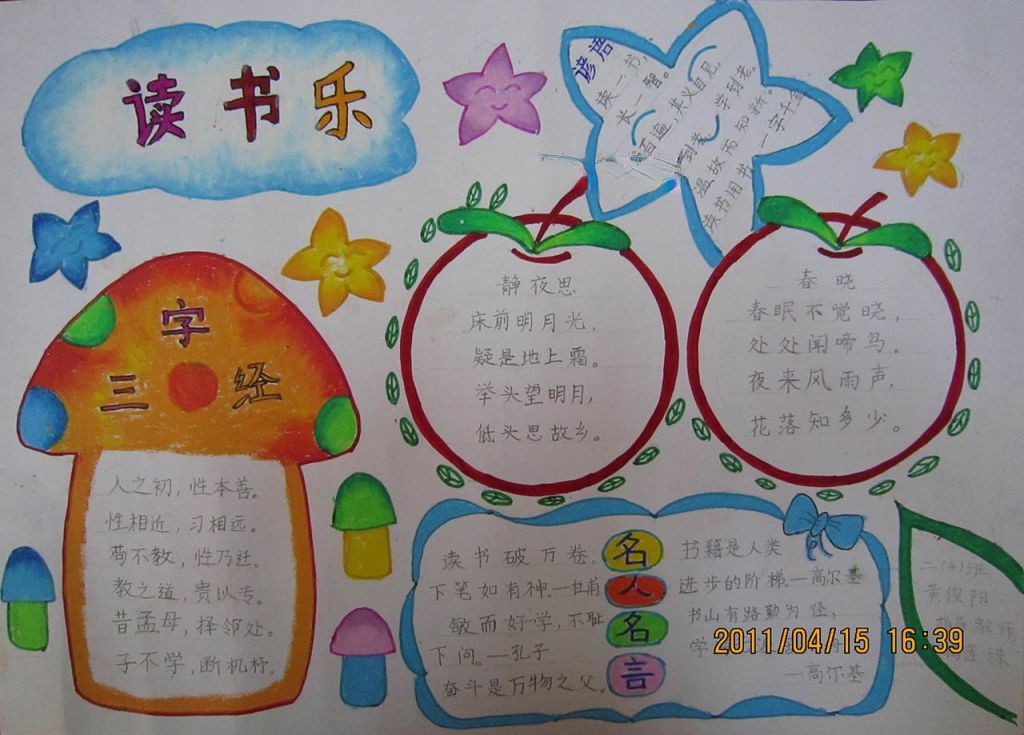 读书乐
谚语
读一书，
长一智。
百遍，其义自见。
学到老。
温故而知新。
读书用书 一字千金
字
三 经
人之初，性本善。
性相近，习相远。
苟不教，性乃迁。
教之道，贵以专。
昔孟母，择邻处。
子不学，断机杼。
静夜思
床前明月光，
疑是地上霜。
举头望明月，
低头思故乡。
春晓
春眠不觉晓，
处处闻啼鸟。
夜来风雨声，
花落知多少。
名人名言
读书破万卷，
下笔如有神。—杜甫
敏而好学，不耻
下问。—孔子
奋斗是万物之父。
书籍是人类
进步的阶梯。—高尔基
书山有路勤为径，
学
—高尔基
二(4)班
黄俊阳
指导教师
珠
2011/04/15 16:39